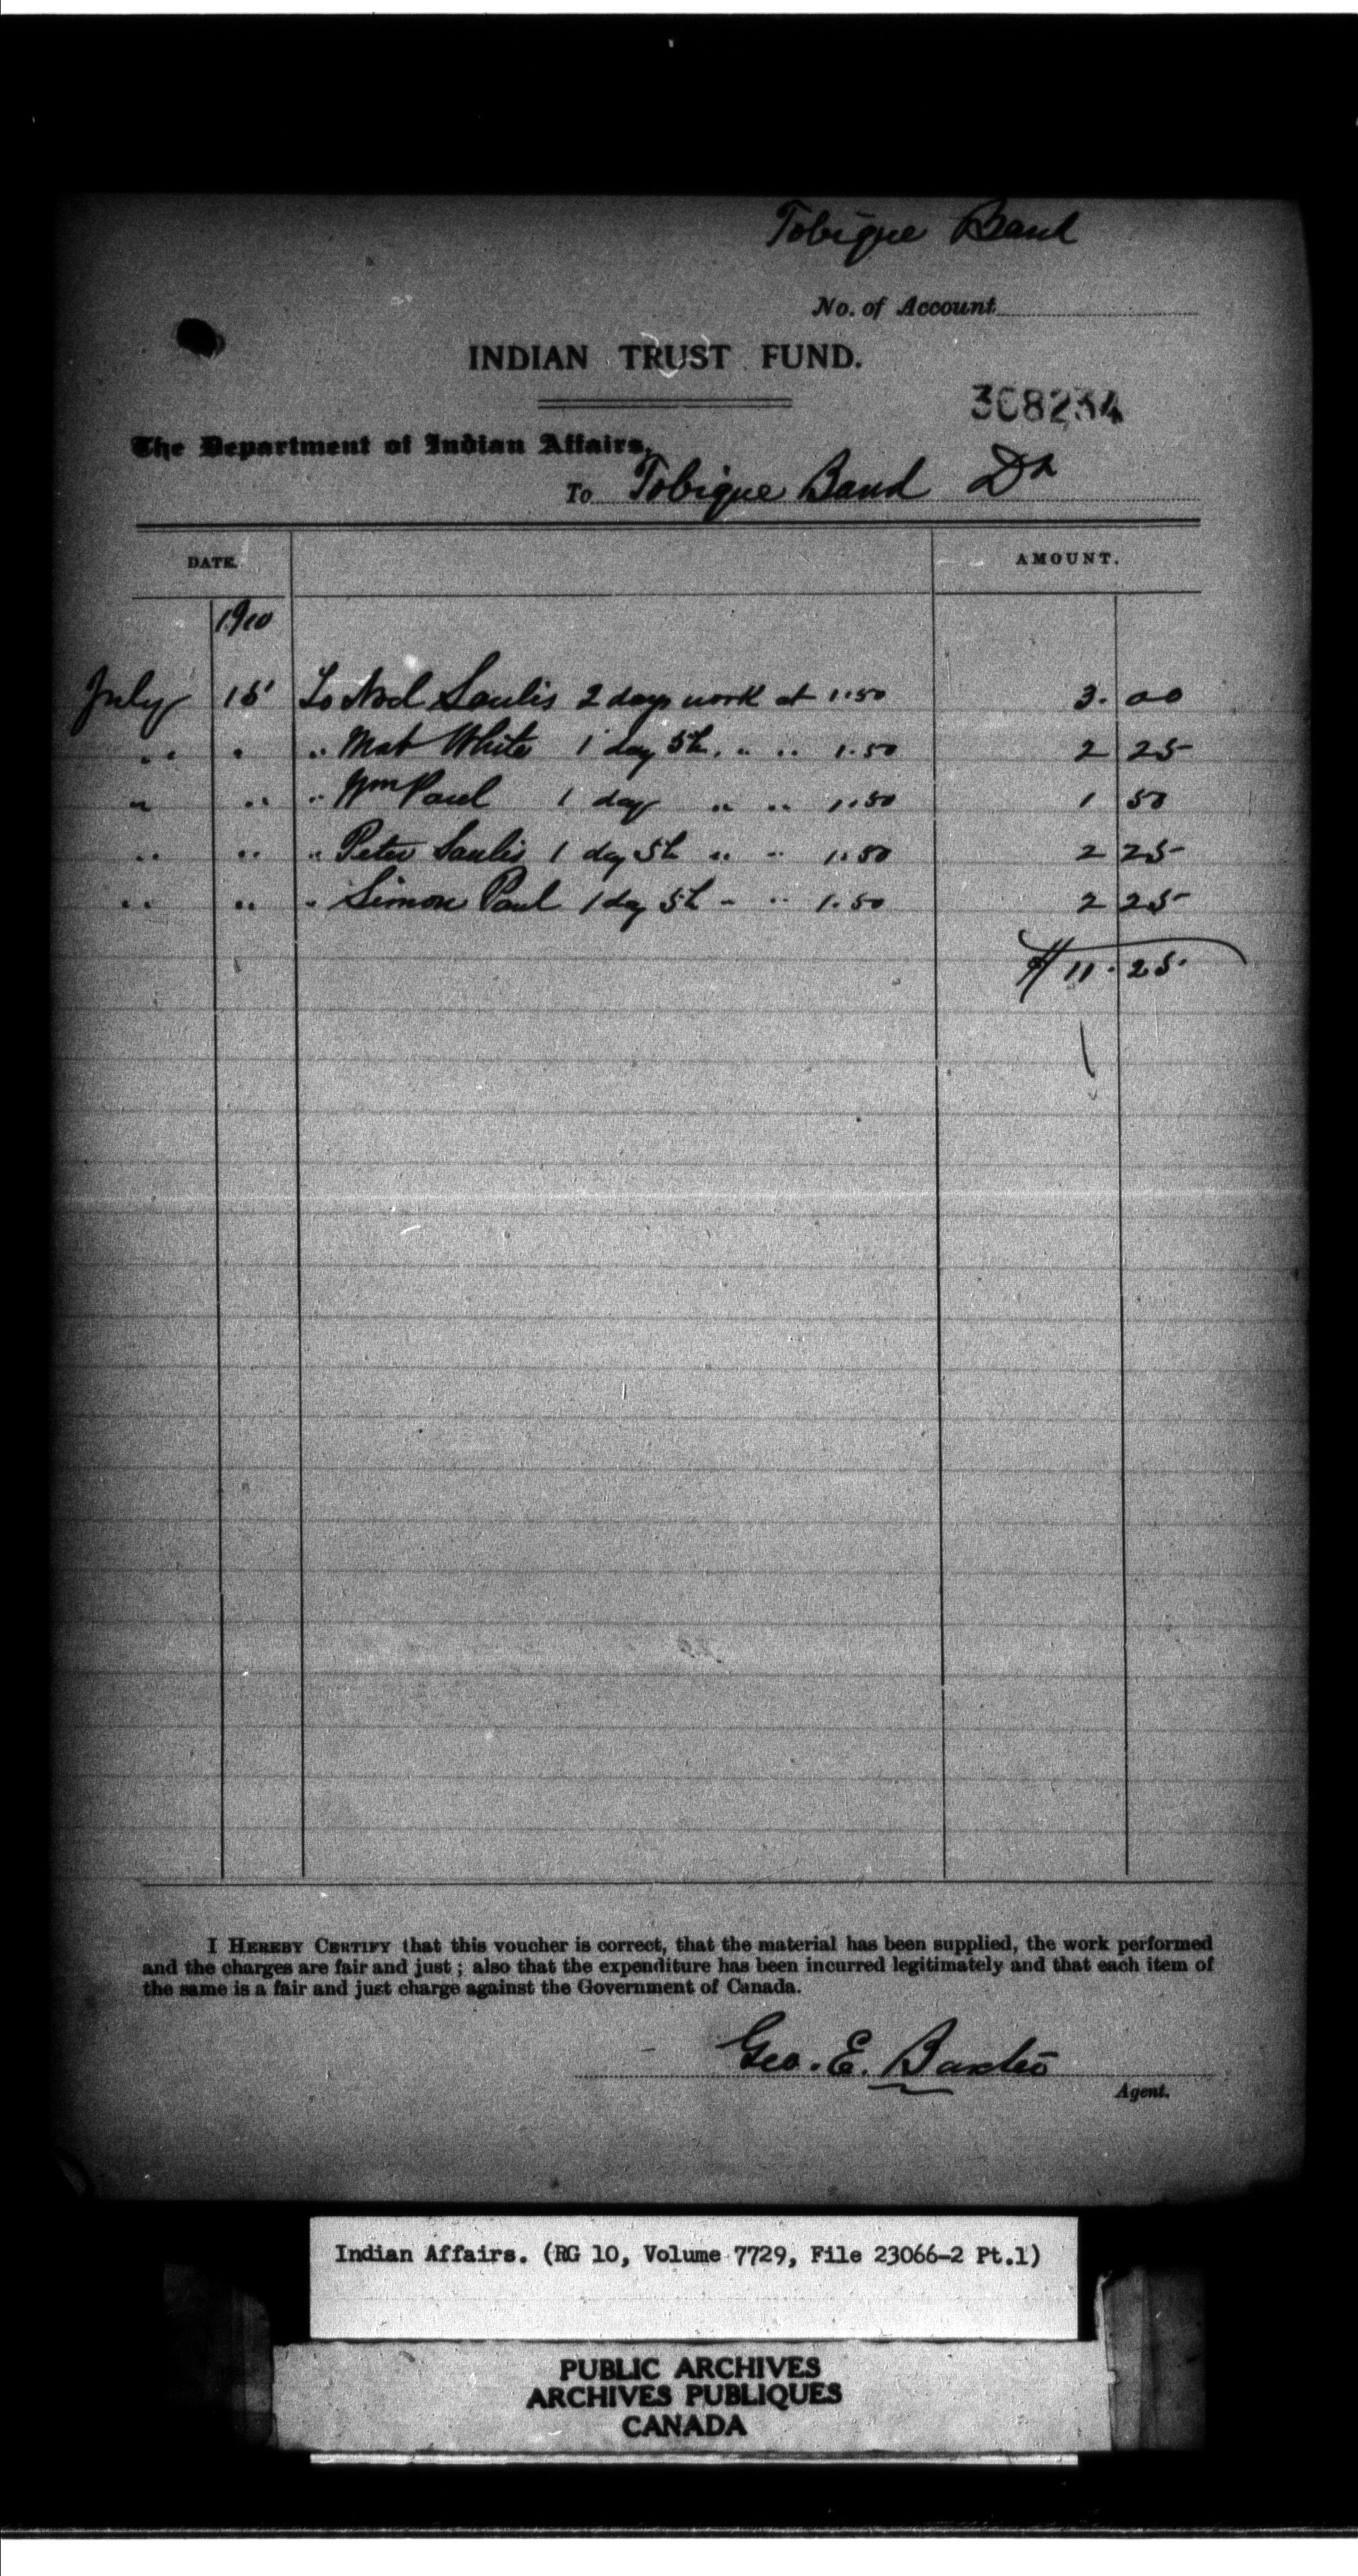 Tobique Band
No. of Account
INDIAN TRUST FUND.
308234
The Department of Indian Affairs,
To Tobique Band Dr
DATE. AMOUNT.
1910
July 15 To Noel Saulis 2 days work at 1.50 3.00
" " " Mat White 1 day 5h. " " 1.50 2 25
" " " Wm Paul 1 day " " 1.50 1 50
" " " Peter Saulis 1 day 5h " " 1.50 2 25
" " " Simon Paul 1 day 5h " " 1.50 2 25
$11.25
I HEREBY CERTIFY that this voucher is correct, that the material has been supplied, the work performed
and the charges are fair and just; also that the expenditure has been incurred legitimately and that each item of
the same is a fair and just charge against the Government of Canada.
Geo. E. Baxter
Agent.
Indian Affairs. (RG 10, Volume 7729, File 23066-2 Pt.1)
PUBLIC ARCHIVES
ARCHIVES PUBLIQUES
CANADA